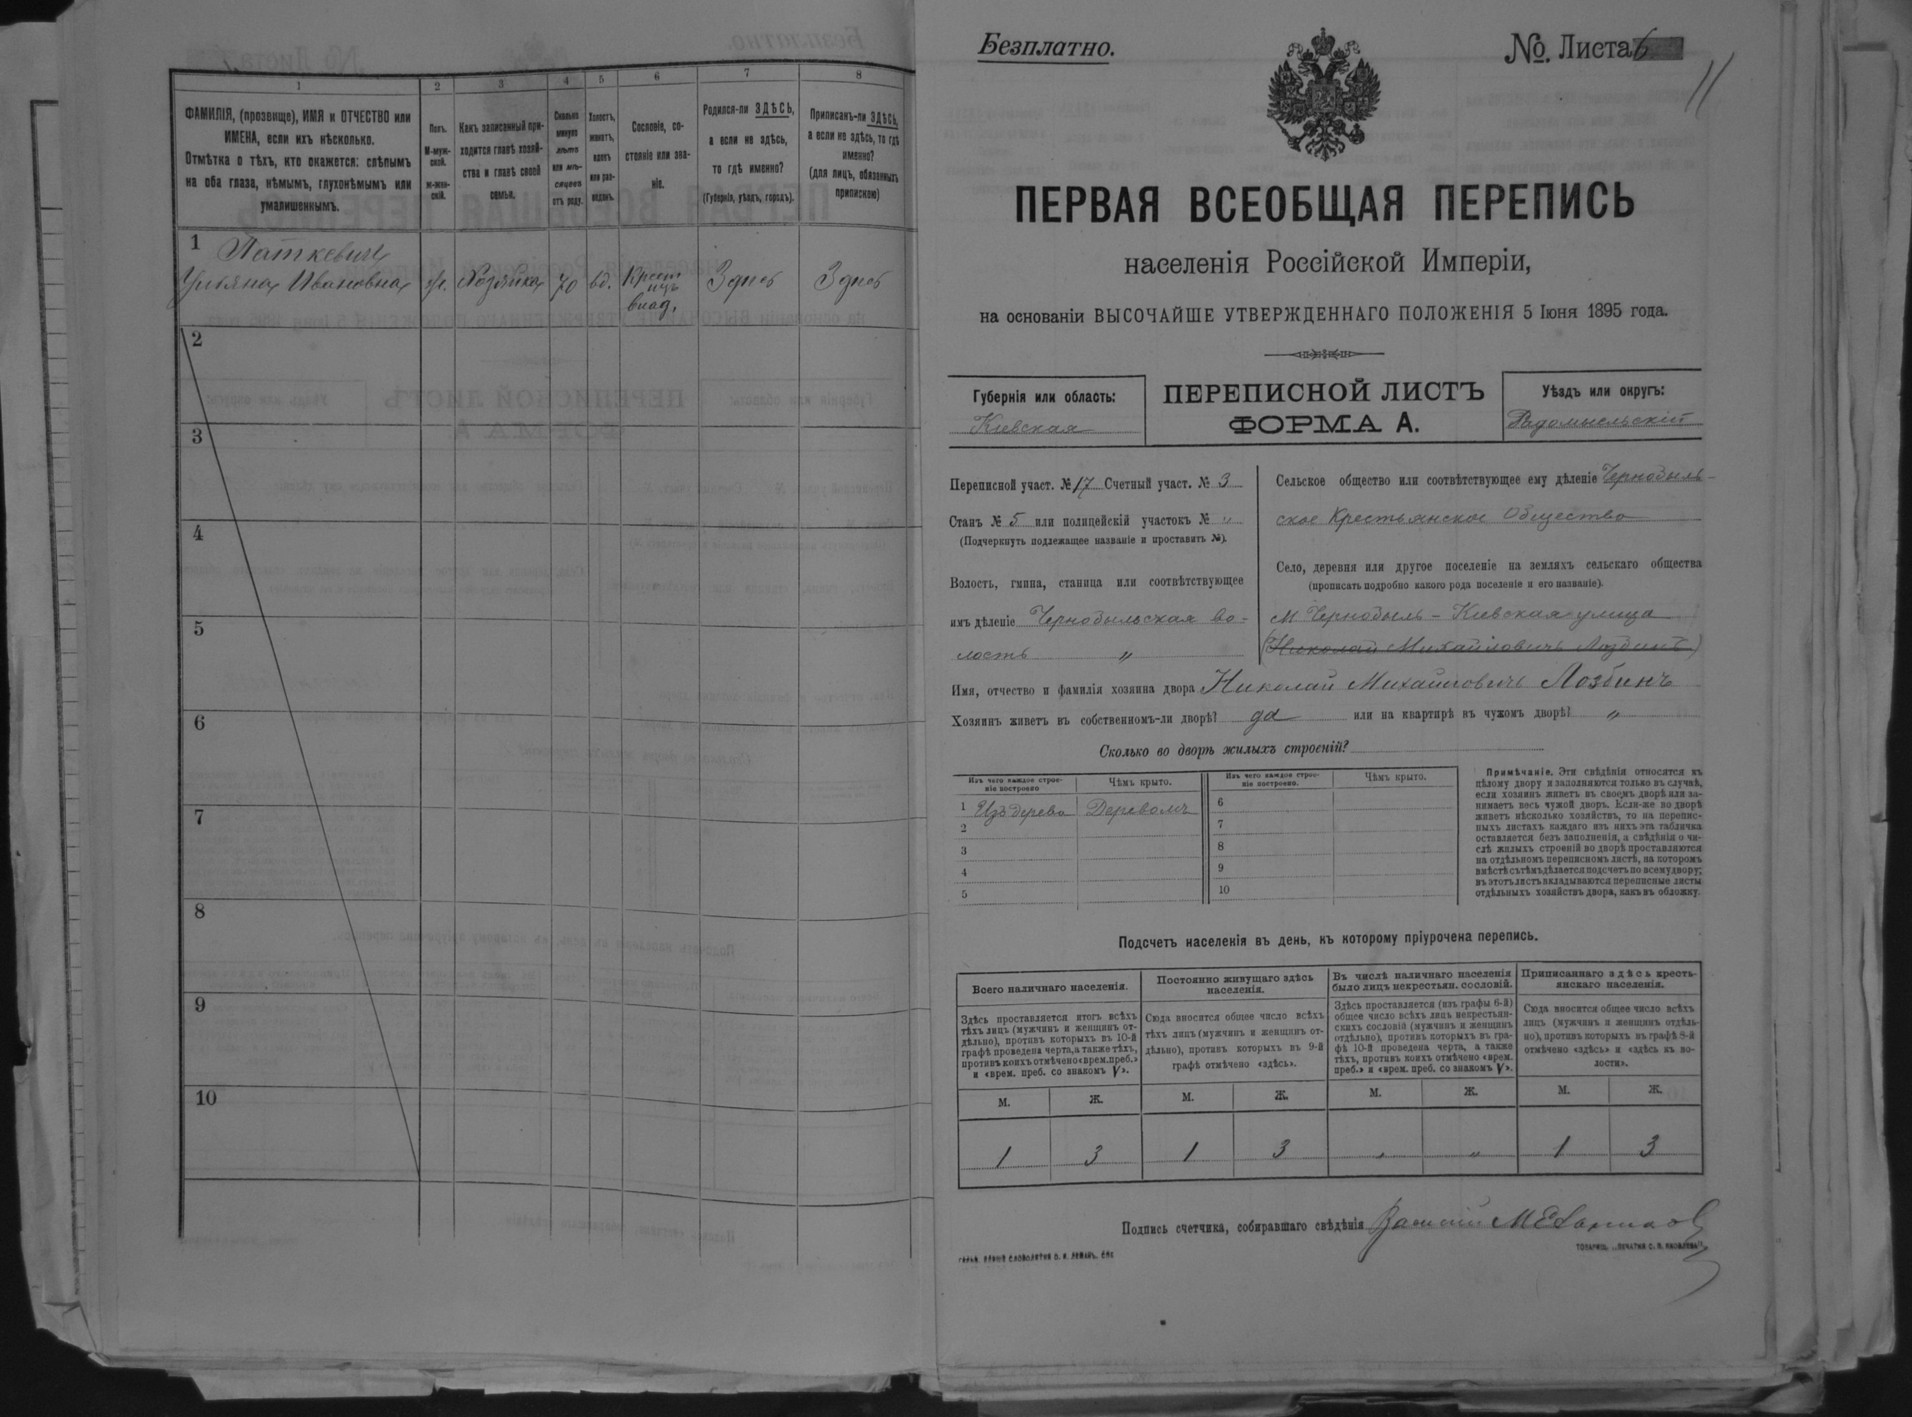 1 2 3 4 5 6 7 8
ФАМИЛІЯ, (прозвище), ИМЯ и ОТЧЕСТВО или
ИМЕНА, если ихъ нѣсколько.
Отмѣтка о тѣхъ, кто окажется: слѣпымъ
на оба глаза, нѣмымъ, глухонѣмымъ или
умалишеннымъ.
Полъ.
М-муж-
ской.
ж-жен-
скій.
Какъ записанный при-
ходится главѣ хозяй-
ства и главѣ своей
семьи.
Сколько
минуло
лѣтъ
или мѣ-
сяцевъ
отъ роду.
Холостъ,
женатъ,
вдовъ
или раз-
веденъ.
Сословіе, со-
стояніе или зва-
ніе.
Родился-ли ЗДѢСЬ,
а если не здѣсь,
то гдѣ именно?
(Губернія, уѣздъ, городъ).
Приписанъ-ли ЗДѢСЬ,
а если не здѣсь, то гдѣ
именно?
(для лицъ, обязанныхъ
припискою)
1
Ульяна Ивановна ж. Хозяйка 70 вд. Здѣсь Здѣсь
2
3
4
5
6
7
8
9
10
Безплатно.
№. Листа 6
11
ПЕРВАЯ ВСЕОБЩАЯ ПЕРЕПИСЬ
населенія Россійской Имперіи,
на основаніи ВЫСОЧАЙШЕ УТВЕРЖДЕННАГО ПОЛОЖЕНІЯ 5 Іюня 1895 года.
Губернія или область:
Кіевская
ПЕРЕПИСНОЙ ЛИСТЪ
ФОРМА А.
Уѣздъ или округъ:
Радомысльскій
Переписной участ. № 17 Счетный участ. № 3
Станъ № 5 или полицейскій участокъ № "
(Подчеркнуть подлежащее названіе и проставить №).
Волость, гмина, станица или соотвѣтствующее
имъ дѣленіе Чернобыльская во-
лость "
Сельское общество или соотвѣтствующее ему дѣленіе Чернобыль-
ское Крестьянское Общество
Село, деревня или другое поселеніе на земляхъ сельскаго общества
(прописать подробно какого рода поселеніе и его названіе).
м Чернобыль – Кіевская улица
(Николай Михайловичъ Лозбинъ)
Имя, отчество и фамилія хозяина двора Николай Михайловичъ Лозбинъ
Хозяинъ живетъ въ собственномъ-ли дворѣ? да или на квартирѣ въ чужомъ дворѣ? "
Сколько во дворѣ жилыхъ строеній?
Изъ чего каждое строе-
ніе построено
Чѣмъ крыто.
Изъ чего каждое строе-
ніе построено.
Чѣмъ крыто.
1 Изъ дерева Деревомъ
2
3
4
5
6
7
8
9
10
Примѣчаніе. Эти свѣдѣнія относятся къ
цѣлому двору и заполняются только въ случаѣ,
если хозяинъ живетъ въ своемъ дворѣ или за-
нимаетъ весь чужой дворъ. Если-же во дворѣ
живетъ нѣсколько хозяйствъ, то на перепис-
ныхъ листахъ каждаго изъ нихъ эта табличка
оставляется безъ заполненія, а свѣдѣнія о чи-
слѣ жилыхъ строеній во дворѣ проставляются
на отдѣльномъ переписномъ листѣ, на которомъ
вмѣстѣ съ тѣмъ дѣлается подсчетъ по всему двору;
въ этотъ листъ вкладываются переписные листы
отдѣльныхъ хозяйствъ двора, какъ въ обложку.
Подсчетъ населенія въ день, къ которому пріурочена перепись.
Всего наличнаго населенія.
Здѣсь проставляется итогъ всѣхъ
тѣхъ лицъ (мужчинъ и женщинъ от-
дѣльно), противъ которыхъ въ 10-й
графѣ проведена черта, а также тѣхъ,
противъ коихъ отмѣчено «врем. преб.»
и «врем. преб. со знакомъ V».
Постоянно живущаго здѣсь
населенія.
Сюда вносится общее число всѣхъ
тѣхъ лицъ (мужчинъ и женщинъ от-
дѣльно), противъ которыхъ въ 9-й
графѣ отмѣчено «здѣсь».
Въ числѣ наличнаго населенія
было лицъ некрестьян. сословій.
Здѣсь проставляется (изъ графы 6-й)
общее число всѣхъ лицъ некрестьян-
скихъ сословій (мужчинъ и женщинъ
отдѣльно), противъ которыхъ въ гра-
фѣ 10-й проведена черта, а также
тѣхъ, противъ коихъ отмѣчено «врем.
преб.» и «врем. преб. со знакомъ V».
Приписаннаго здѣсь кресть-
янскаго населенія.
Сюда вносится общее число всѣхъ
лицъ (мужчинъ и женщинъ отдѣль-
но), противъ которыхъ въ графѣ 8-й
отмѣчено «здѣсь» и «здѣсь къ во-
лости».
М. Ж. М. Ж. М. Ж. М. Ж.
1 3 1 3 " " 1 3
Подпись счетчика, собиравшаго свѣдѣнія